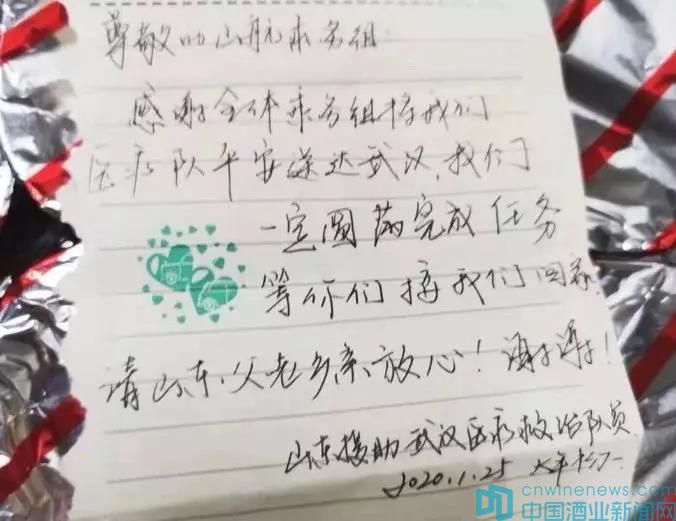 尊敬的山航乘务组:
感谢全体乘务组将我们
医疗队平安送达武汉,我们
一定圆满完成任务
等你们接我们回家.
请山东父老乡亲放心!谢谢!
山东援助武汉医疗救治队员
2020.1.25 大年初一
cnwinenews.com
中国酒业新闻网